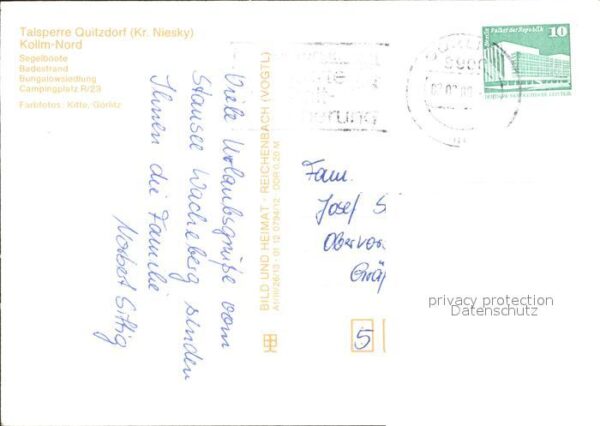 Talsperre Quitzdorf (Kr. Niesky)
Kollm-Nord
Segelboote
Badestrand
Bungalowsiedlung
Campingplatz R/23
Farbfotos: Kitte, Görlitz
Viele Urlaubsgrüße vom
Stausee Wacheberg senden
Ihnen die Familie
Norbert Sittig
BILD UND HEIMAT · REICHENBACH (VOGTL)
A1/III/26/13 · 01 12 0794/12 · DDR 0,20 M
10
Palast der Republik
Fam.
Josef S
Obervor
Gräf
privacy protection
Datenschutz
5